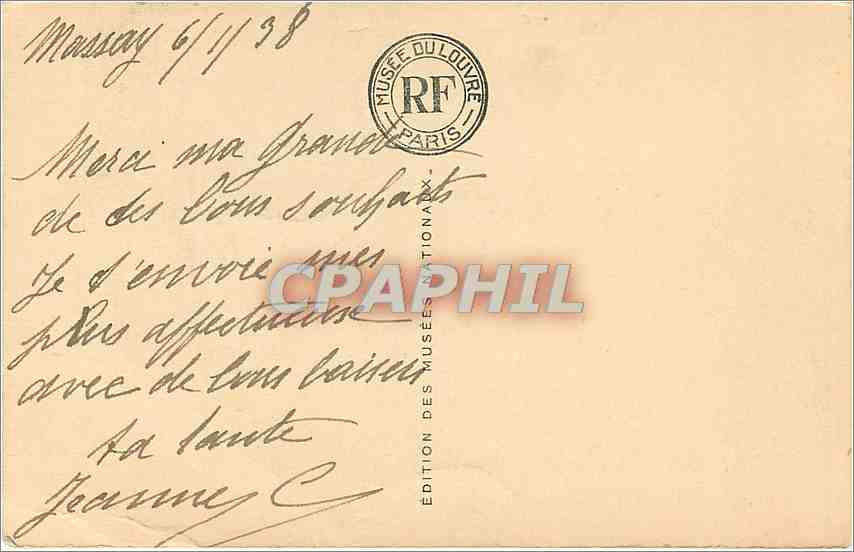 Massay 6/1/38
MUSÉE DU LOUVRE
RF
PARIS
Merci ma Grande
de tes bons souhaits
Je t'envoie mes
plus affectueuse
avec de bons baisers
ta tante
Jeanne C
ÉDITION DES MUSÉES NATIONAUX
CPAPHIL